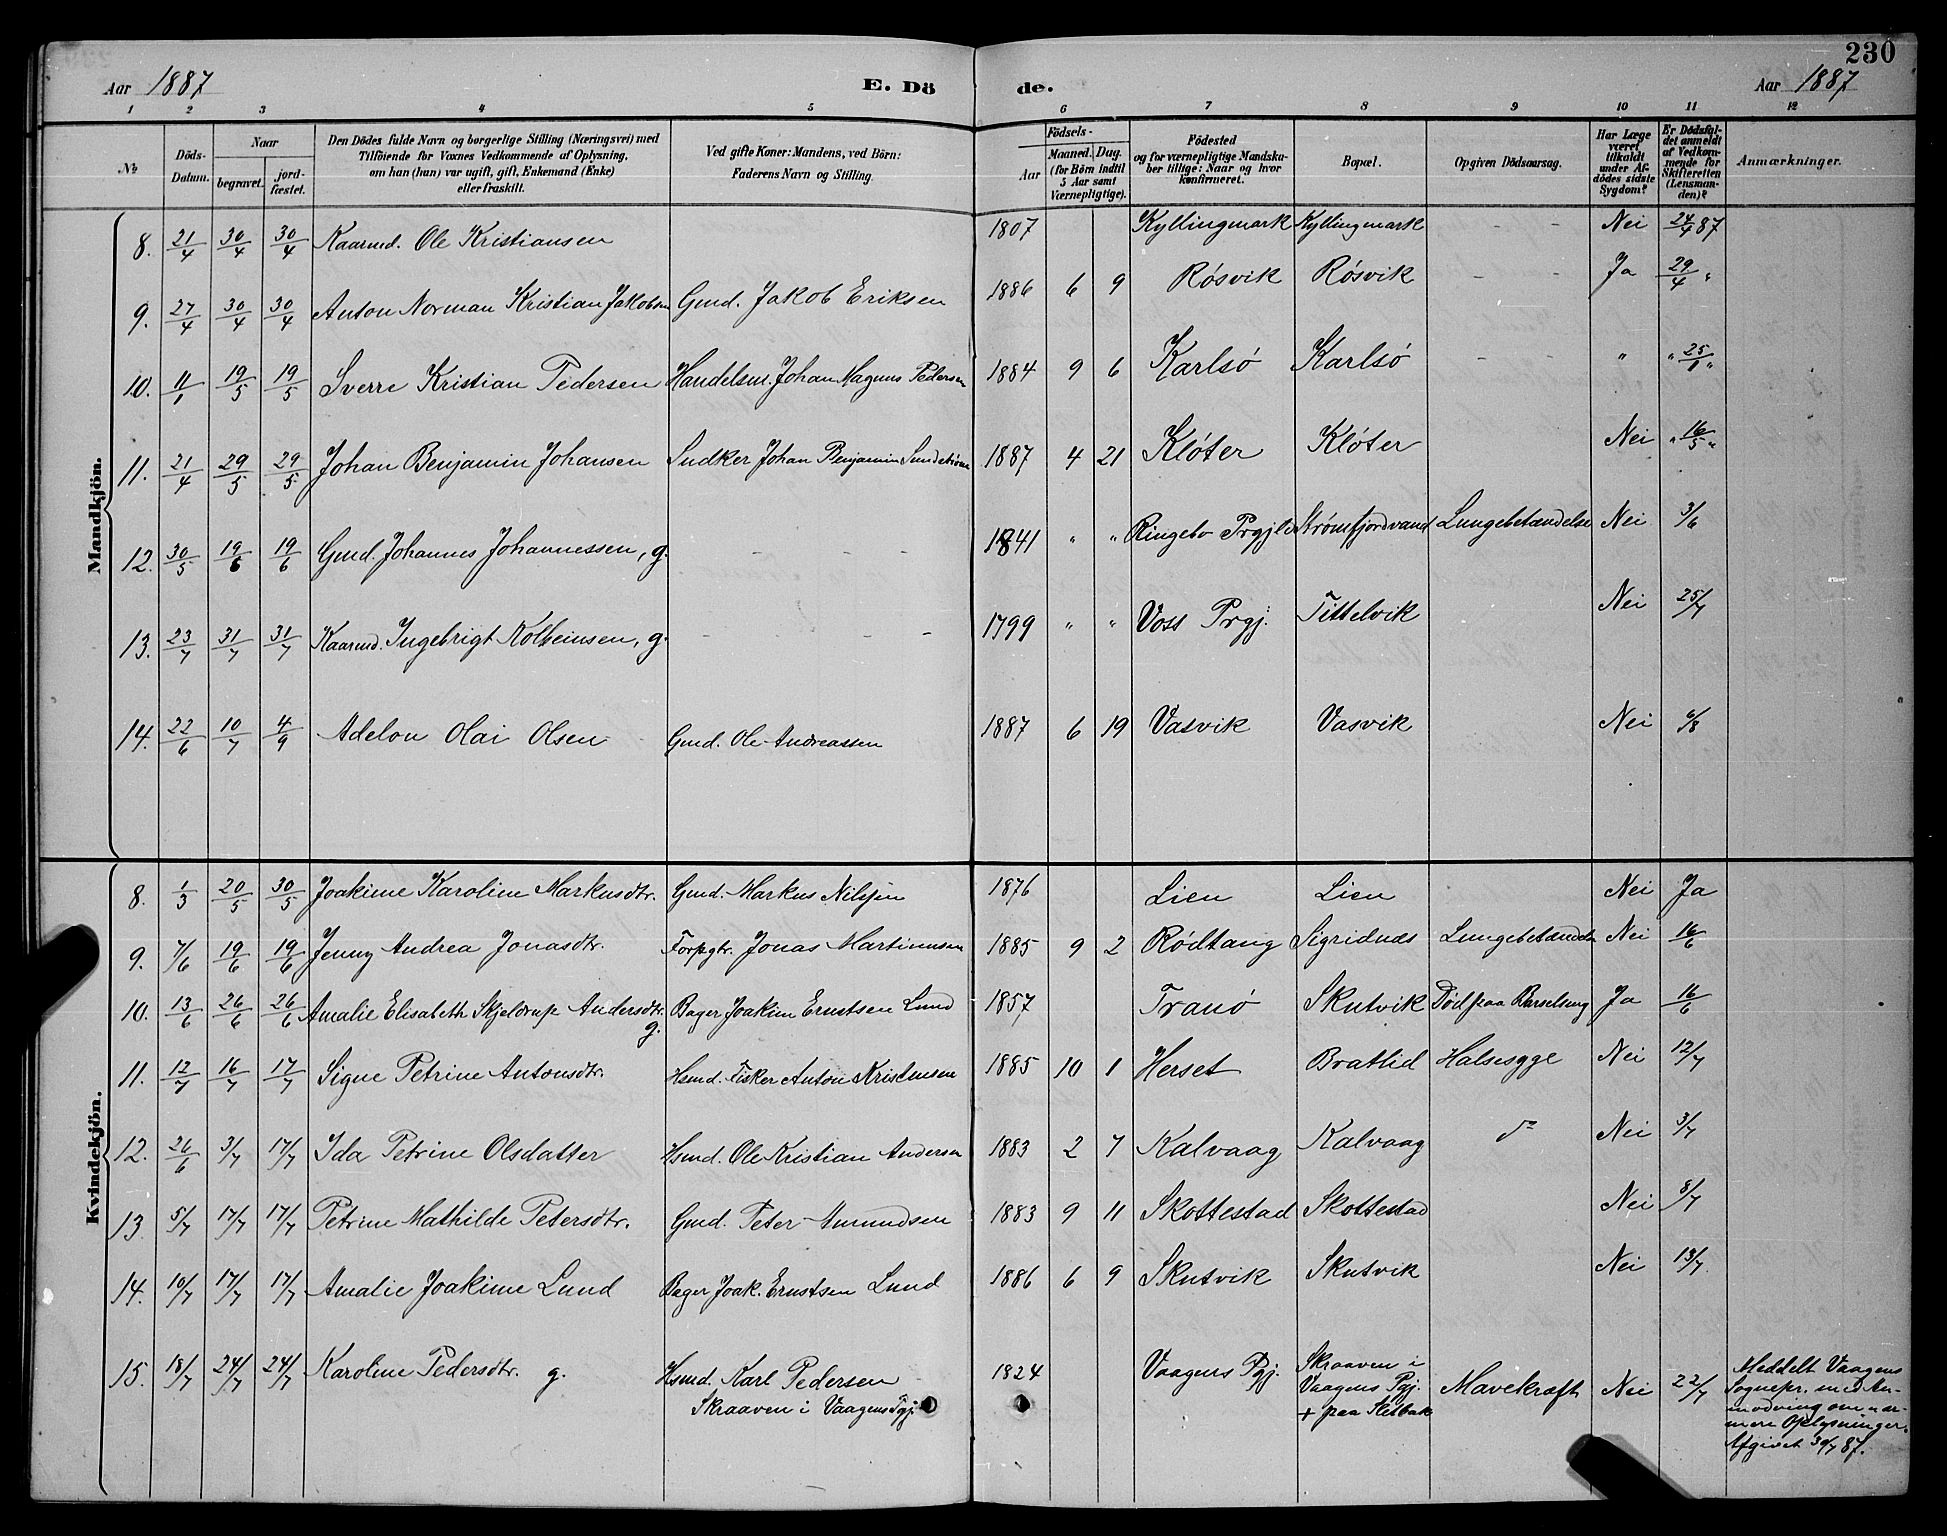 230
Aar 1887 E. Dö de. Aar 1887
1 2 3 4 5 6 7 8 9 10 11 12
№ Döds-Datum. Naar begravet. jordfæstet. Den Dödes fulde Navn og borgerlige Stilling (Næringsvei) med Tilföiende for Voxnes Vedkommende af Oplysning, om han (hun) var ugift, gift, Enkemand (Enke) eller fraskilt. Ved gifte Koner: Mandens, ved Börn: Faderens Navn og Stilling. Födsels- Aar Maaned. Dag. (for Börn indtil 5 Aar samt Værnepligtige). Födested og for værnepligtige Mandskaber tillige: Naar og hvor konfirmeret. Bopæl. Opgiven Dödsaarsag. Har Læge været tilkaldt under Afdödes sidste Sygdom? Er Dödsfaldet anmeldt af Vedkommende for Skifteretten (Lensmanden)? Anmærkninger.
Mandkjön.
8. 21/4 30/4 30/4 Kaarmd. Ole Kristiansen 1807 Kyllingmark Kyllingmark - - Nei 24/4 87
9. 27/4 30/4 30/4 Anton Norman Kristian Jakobsen Gmd. Jakob Eriksen 1886 6 9 Røsvik Røsvik - - Ja 29/4 "
10. 11/1 19/5 19/5 Sverre Kristian Pedersen Handelsm. Johan Magnus Pedersen 1884 9 6 Karlsø Karlsø - - " " 25/1 "
11. 21/4 29/5 29/5 Johan Benjamin Johansen Johan Benjamin 1887 4 21 Kløter Kløter Nei " 16/5 "
12. 30/5 19/6 19/6 Gmd. Johannes Johannessen, g. - - - 1841 " " Ringebo Prgjld Strømfjordvand Lungebetændelse Nei 3/6
13. 23/7 31/7 31/7 Kaarmd. Ingebrigt Kolbeinsen, g. - - - 1799 " " Voss Prgj. Tittelvik Nei 25/7
14. 22/6 10/7 4/9 Adelon Olai Olsen Gmd. Ole Andreassen 1887 6 19 Vasvik Vasvik Nei 6/8
Kvindekjön.
8. 1/3 20/5 30/5 Joakime Karoline Markusdtr. Gmd. Markus Nilsen 1876 Lien Lien Nei Ja
9. 7/6 19/6 19/6 Jenny Andrea Jonasdtr. Forpgtr. Jonas Martinusen 1885 9 2 Rødtang Sigridnæs Lungebetændelse Nei 16/6
10. 13/6 26/6 26/6 Amalie Elisabeth Skjeldrup Andersdtr. g. Bager Joakim Ernstsen Lund 1857 Tranø Skutvik Død paa Barselseng Ja 16/6
11. 12/7 16/7 17/7 Signe Petrine Antonsdtr. Hsmd. Fisker Anton Kristensen 1885 10 1 Herset Bratlid Halsesyge Nei 12/7
12. 26/6 3/7 17/7 Ida Petrine Olsdatter Hsmd. Ole Kristian Andersen 1883 2 7 Kalvaag Kalvaag do Nei 3/7
13. 5/7 17/7 17/7 Petrine Mathilde Petersdtr. Gmd. Peter Amundsen 1883 9 11 Skottestad Skottestad Nei 8/7
14. 10/7 17/7 17/7 Amalie Joakime Lund Bager Joak. Ernstsen Lund 1886 6 9 Skutvik Skutvik Nei 13/7
15. 18/7 24/7 24/7 Karoline Pedersdtr. g. Hsmd. Karl Pedersen 1824 Vaagens Pgj. Skraaven i Mavekræft Nei 22/7 Meddelt Vaagens
Skraaven i Vaagens Pgj. Vaagens Pgj. Sognepr. med An-
+ paa Sletbak modning om nær-
mere Oplysninger.
Afgivet 30/7 87.